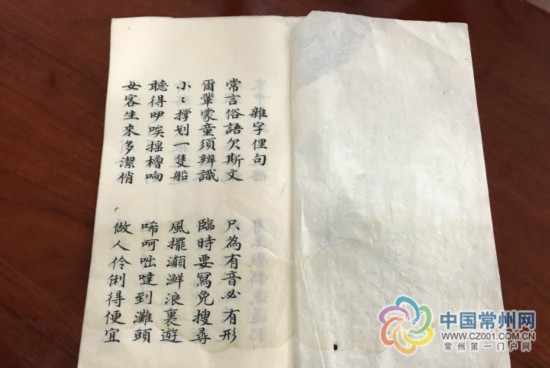 雜字俚句
常言俗語欠斯文 只為有音必有形
爾輩蒙童須辨識 臨時要寫免搜尋
小〻撐划一隻船 風擺瀨浪裏遊
聽得咿唉搖櫓响 唏呵咄噠到灘頭
女客生來多潔俏 做人伶俐得便宜
中国常州网
WWW.CZ001.COM.CN
常州第一门户网